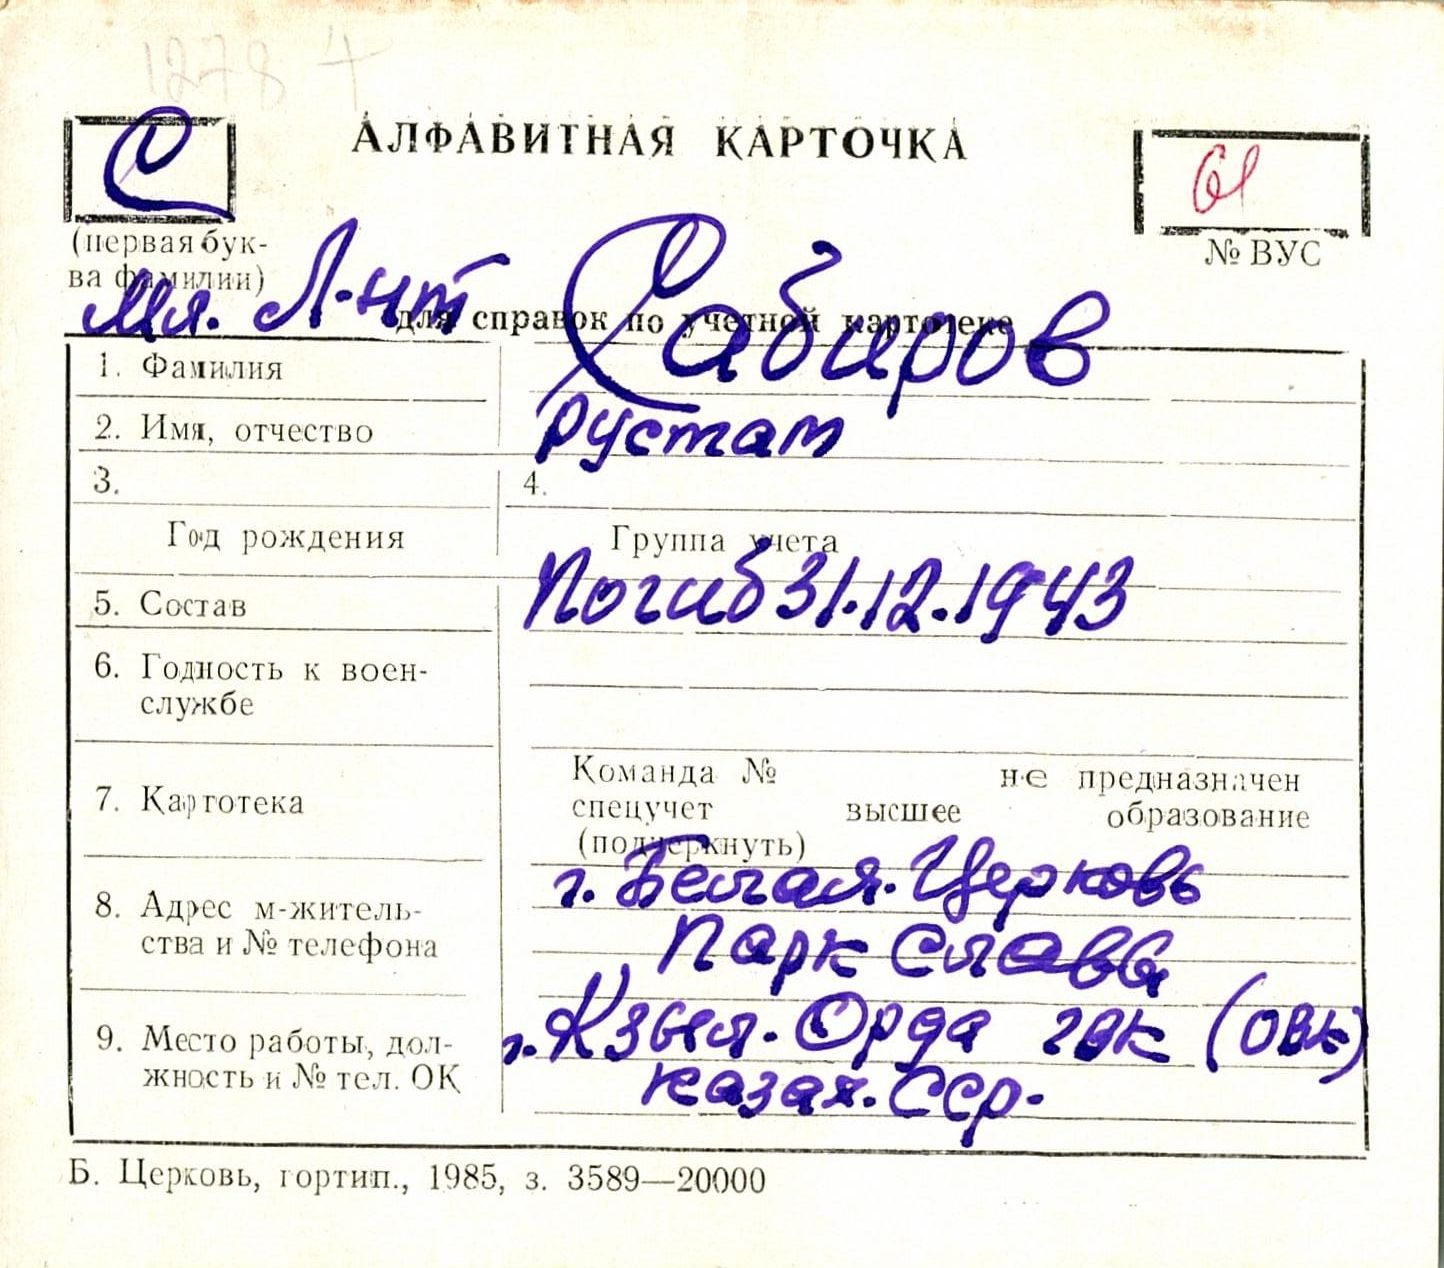 1278 4
С
АЛФАВИТНАЯ КАРТОЧКА
61
(первая бук-
ва фамилии)
№ ВУС
Мл. Л-нт Сабиров
для справок по учетной картотеке
1. Фамилия
2. Имя, отчество Рустам
3. 4.
Год рождения Группа учета
5. Состав Погиб 31.12.1943
6. Годность к воен-
службе
Команда № не предназначен
7. Картотека спецучет высшее образование
(подчеркнуть)
г. Белая. Церковь
8. Адрес м-житель-
ства и № телефона Парк Славы
9. Место работы, дол- г. Кзыл. Орда гвк (ОВК)
жность и № тел. ОК Казах. ССР.
Б. Церковь, гортип., 1985, з. 3589—20000